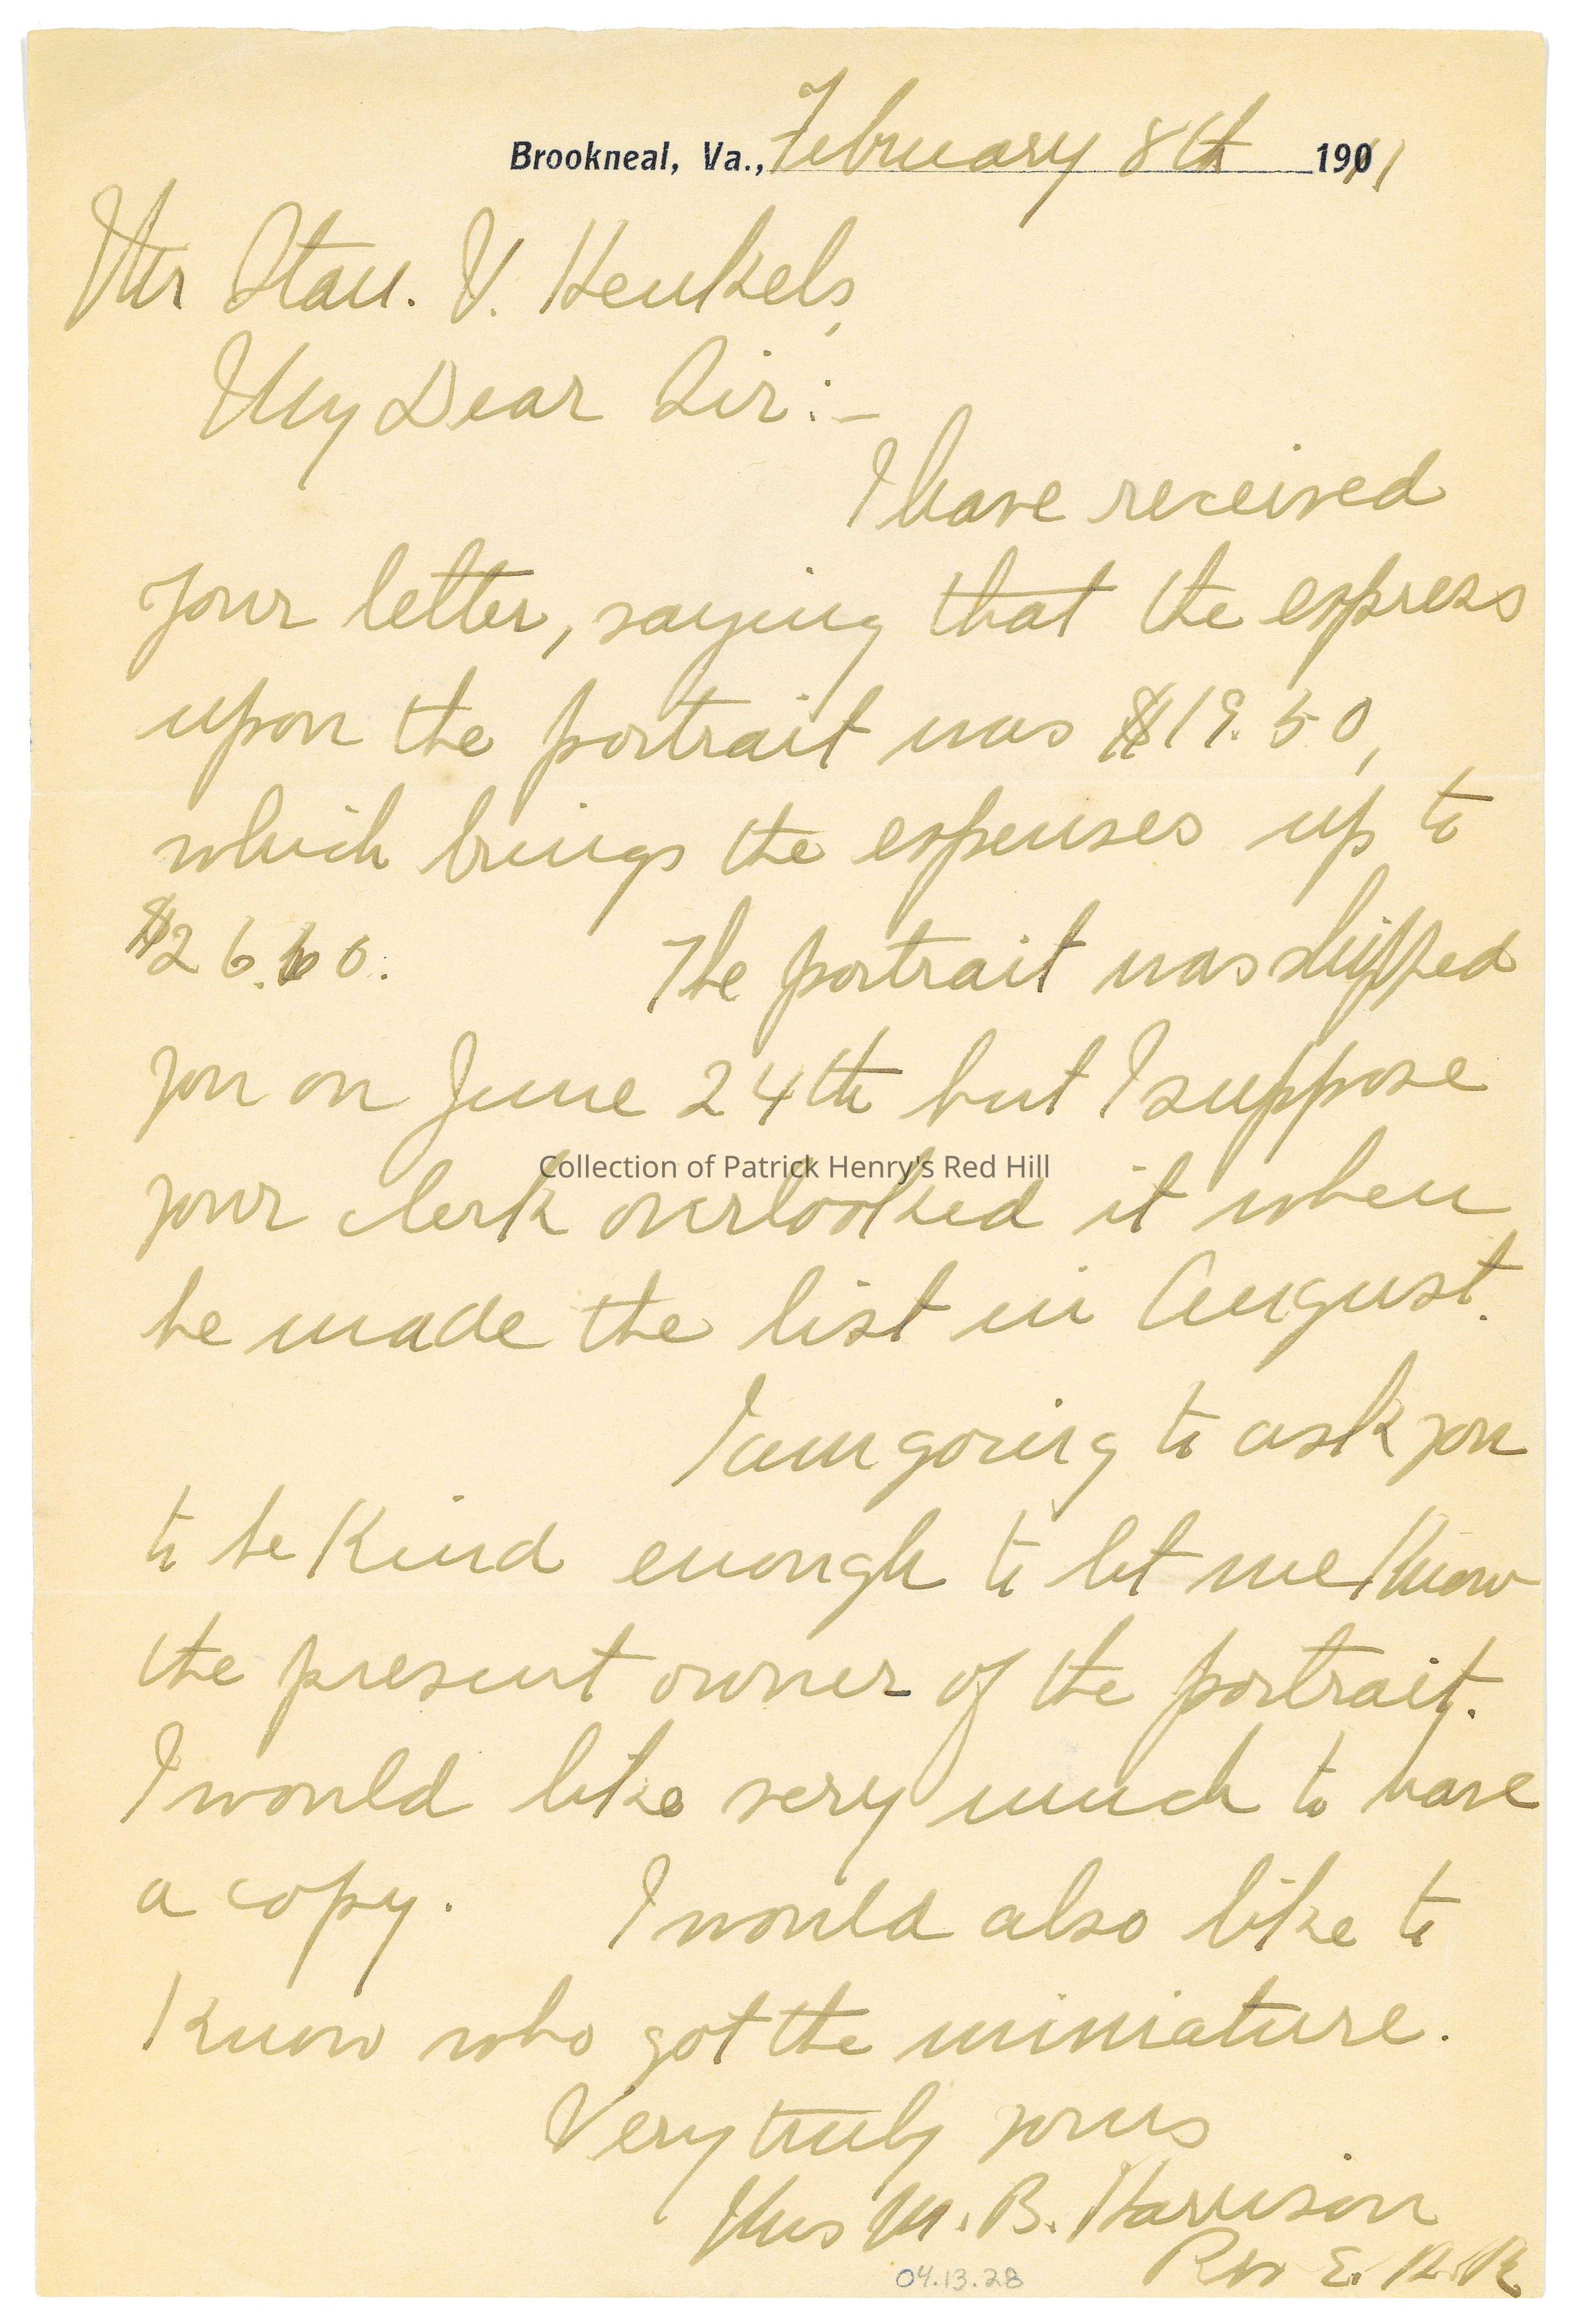 Brookneal, Va., February 8th 1911
Mr Stan. V. Henkels,
My Dear Sir:—
I have received
your letter, saying that the express
upon the portrait was $19.50,
which brings the expenses up to
$26.60. The portrait was shipped
you on June 24th but I suppose
Collection of Patrick Henry's Red Hill
your clerk overlooked it when
he made the list in August.
I am going to ask you
to be kind enough to let me know
the present owner of the portrait.
I would like very much to have
a copy. I would also like to
know who got the miniature.
Very truly yours
Mrs M. B. Harrison
04.13.28